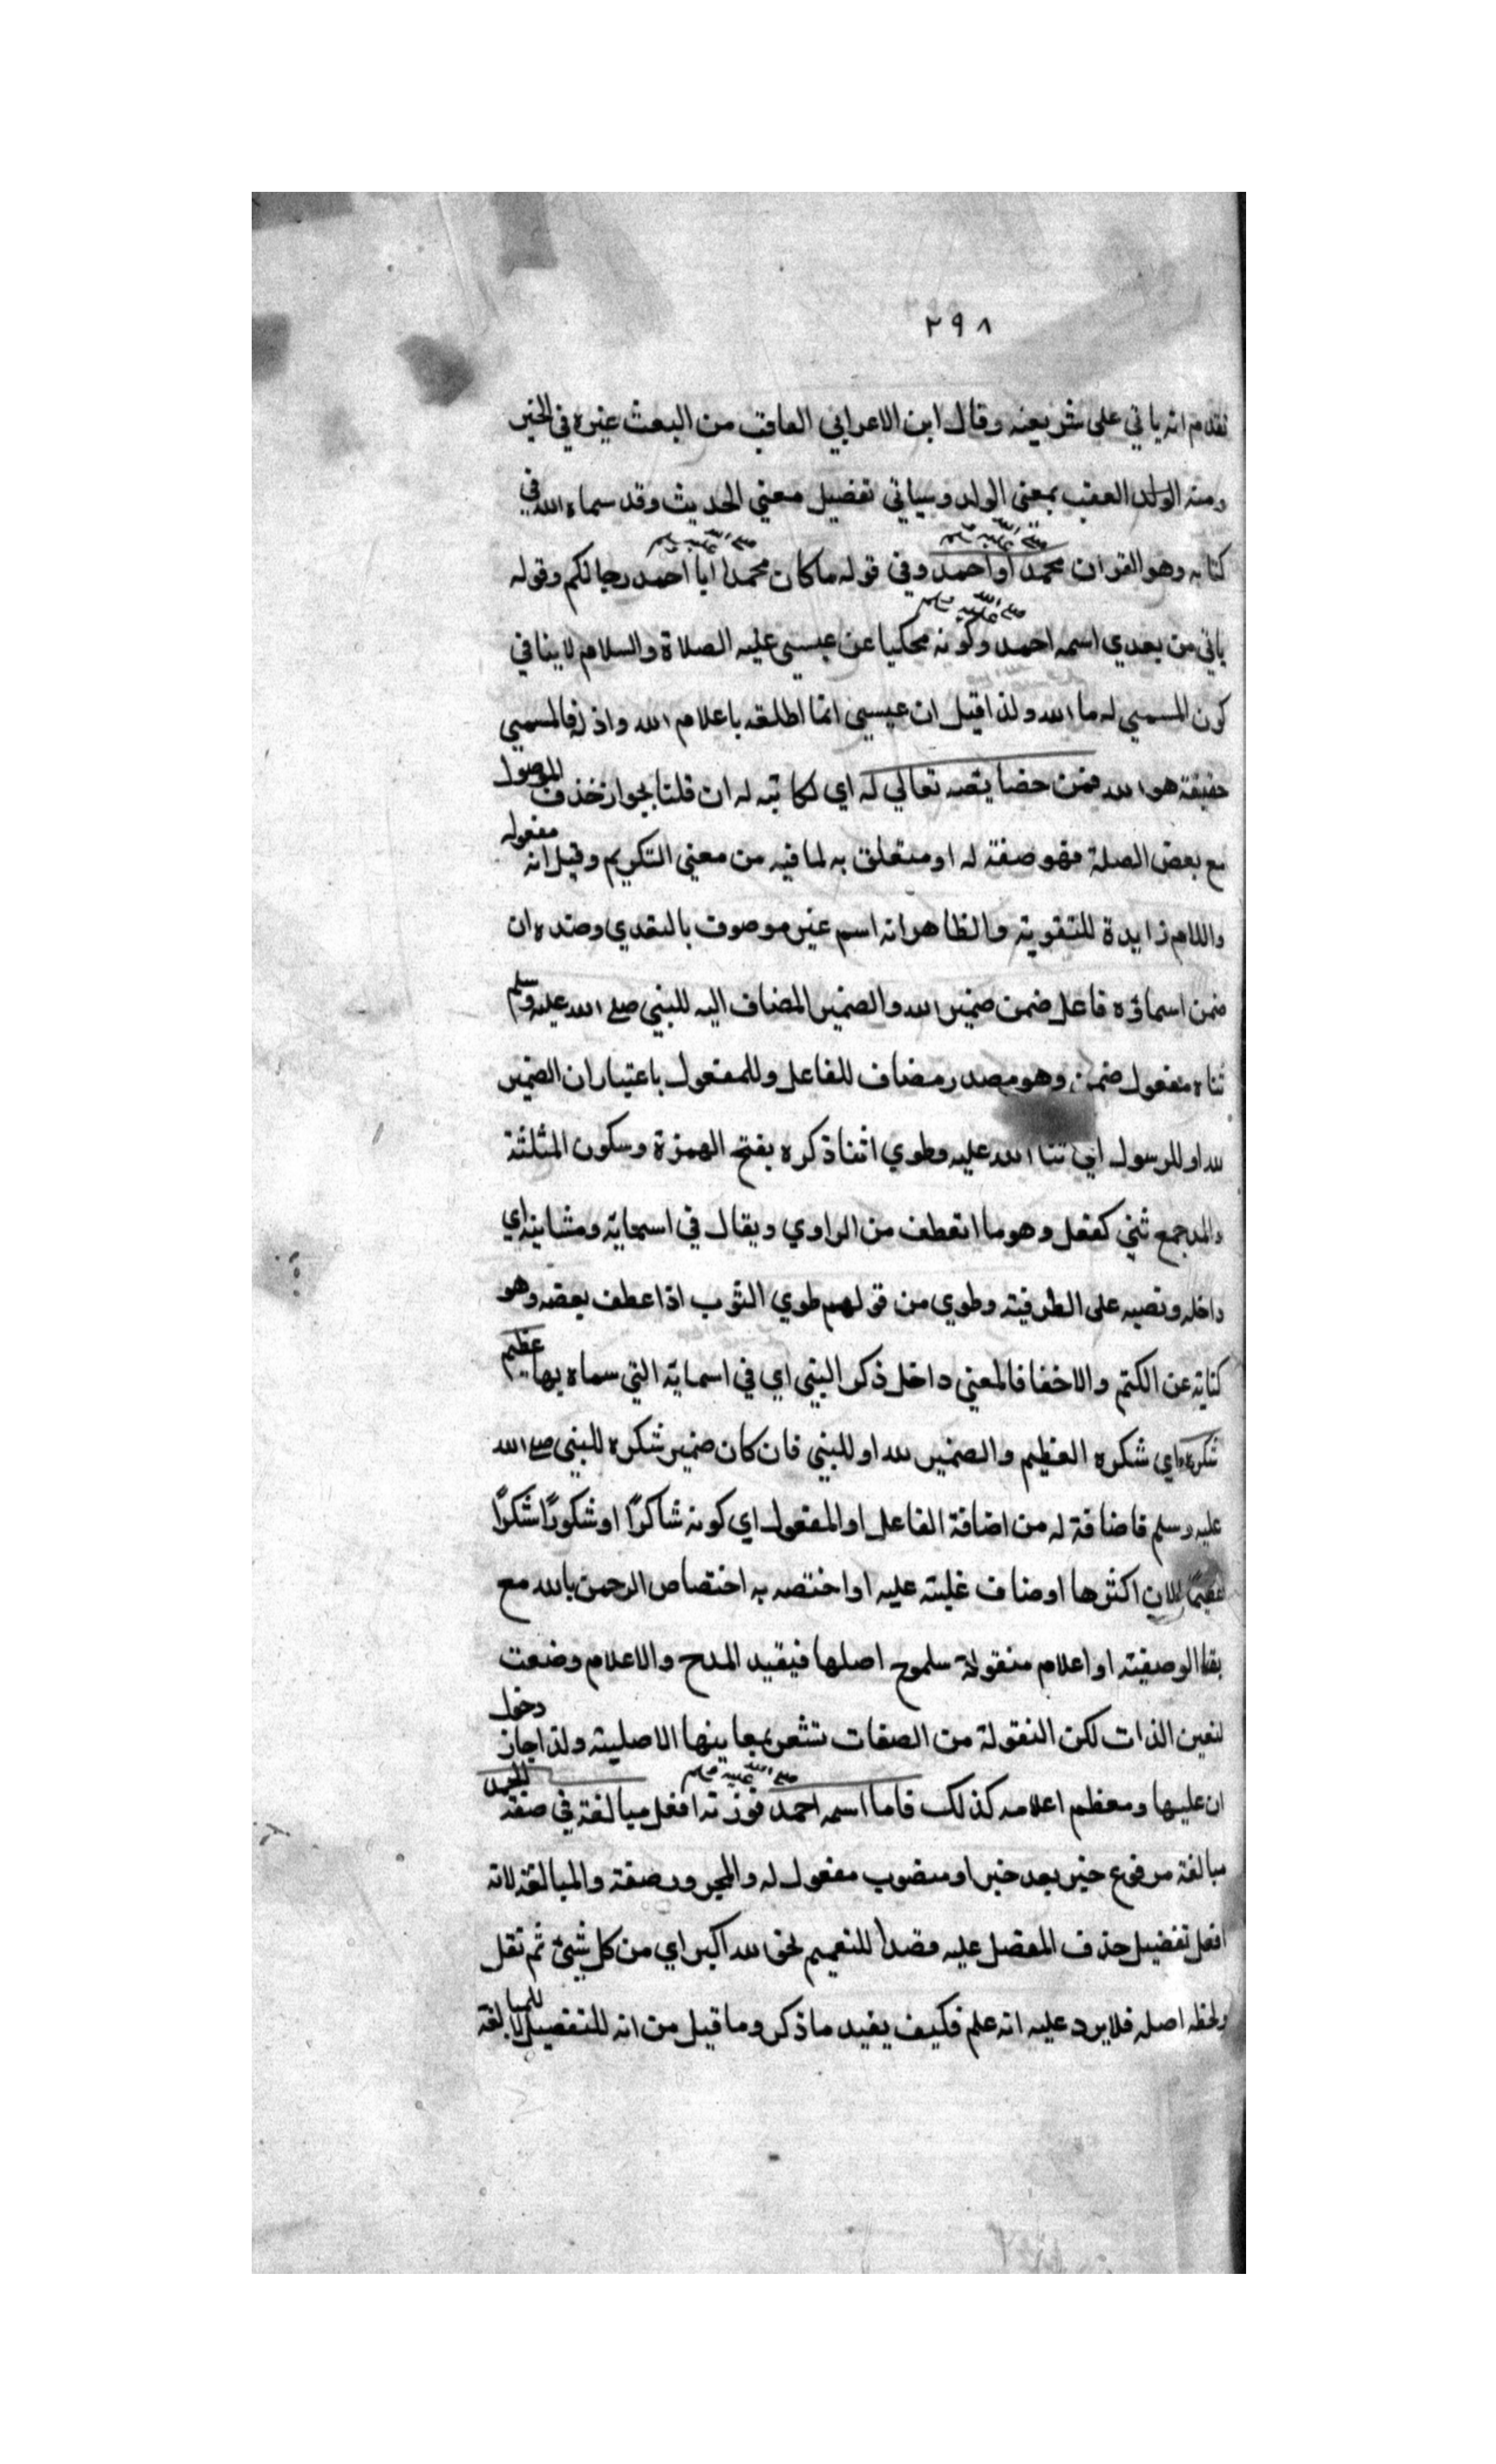 ٢٩٨
تقدم انه ياتي على شريعته وقال ابن الاعرابي العاقب من البعث غيره في الخير
ومنه الولد العقب بمعنى الولد وسياتي تفضيل معني الحديث وقد سماه الله في
كتابه وهو القران محمد صلى الله عليه وسلم او احمد وفي قوله ما كان محمد صلى الله عليه وسلم ابا احمد رجالكم وقوله
ياتي من بعدي اسمه احمد صلى الله عليه وسلم وكونه محكيا عن عيسى عليه الصلاة والسلام لا ينافي
كون المسمي له ما الله ولذا قيل ان عيسي انما اطلقه باعلام الله واذنه فالمسمي
حقيقة هو الله فمن خصايصه تعالي له اي لكاتبه له ان قلنا بجواز حذف الموصول
مع بعض الصلة فهو صفة له او متعلق به لما فيه من معني التكريم وقيل انه مفعوله
واللام زايدة للتقوية والظاهر انه اسم غير موصوف بالتعدي وضده ان
ضمن اسماؤه فاعل ضمن ضمير الله والضمير المضاف اليه للنبي صلى الله عليه وسلم
ثناه مفعول ضمن وهو مصدر مضاف للفاعل وللمفعول باعتبار ان الضمير
لله او للرسول اي ثنا الله عليه وطوي اثنا ذكره بفتح الهمزة وسكون المثلثة
والمد جمع ثني كفعل وهو ما انعطف من الراوي ويقال في اسمايه ومشاينه اي
داخله ونصبه على الظرفية وطوي من قولهم طوي الثوب اذا عطف بعضه وهو
كناية عن الكتم والاخفا فالمعني داخل ذكر النبي اي في اسمايه التي سماه بها عظيم
شكره اي شكره العظيم والضمير لله او للنبي فان كان ضمير شكره للنبي صلى الله
عليه وسلم فاضافة له من اضافة الفاعل او المفعول اي كونه شاكرًا او شكورًا شكرًا
عظيمًا لان اكثرها اوصاف غلبته عليه او اختصه به اختصاص الرحمن بالله مع
بقا الوصفية او اعلام منقولة سلموح اصلها فيفيد المدح والاعلام وضعت
لتعين الذات لكن النقولة من الصفات تشعر بمعاينها الاصلية ولذا جاز دخول
ان عليها ومعظم اعلامه كذلك فاما اسمه احمد صلى الله عليه وسلم فوزنه افعل مبالغة في صفة الحمد
مبالغة مرفوع خبر بعد خبر او منصوب مفعول له والمجرور صفة والمبالغة لانه
افعل تفضيل حذف المفضل عليه قصدا للتعميم نحو الله اكبر اي من كل شيئ ثم نقل
ولحظ اصله فلا يرد عليه انه علم فكيف يفيد ما ذكر وما قيل من انه للتفضيل لا للمبالغة